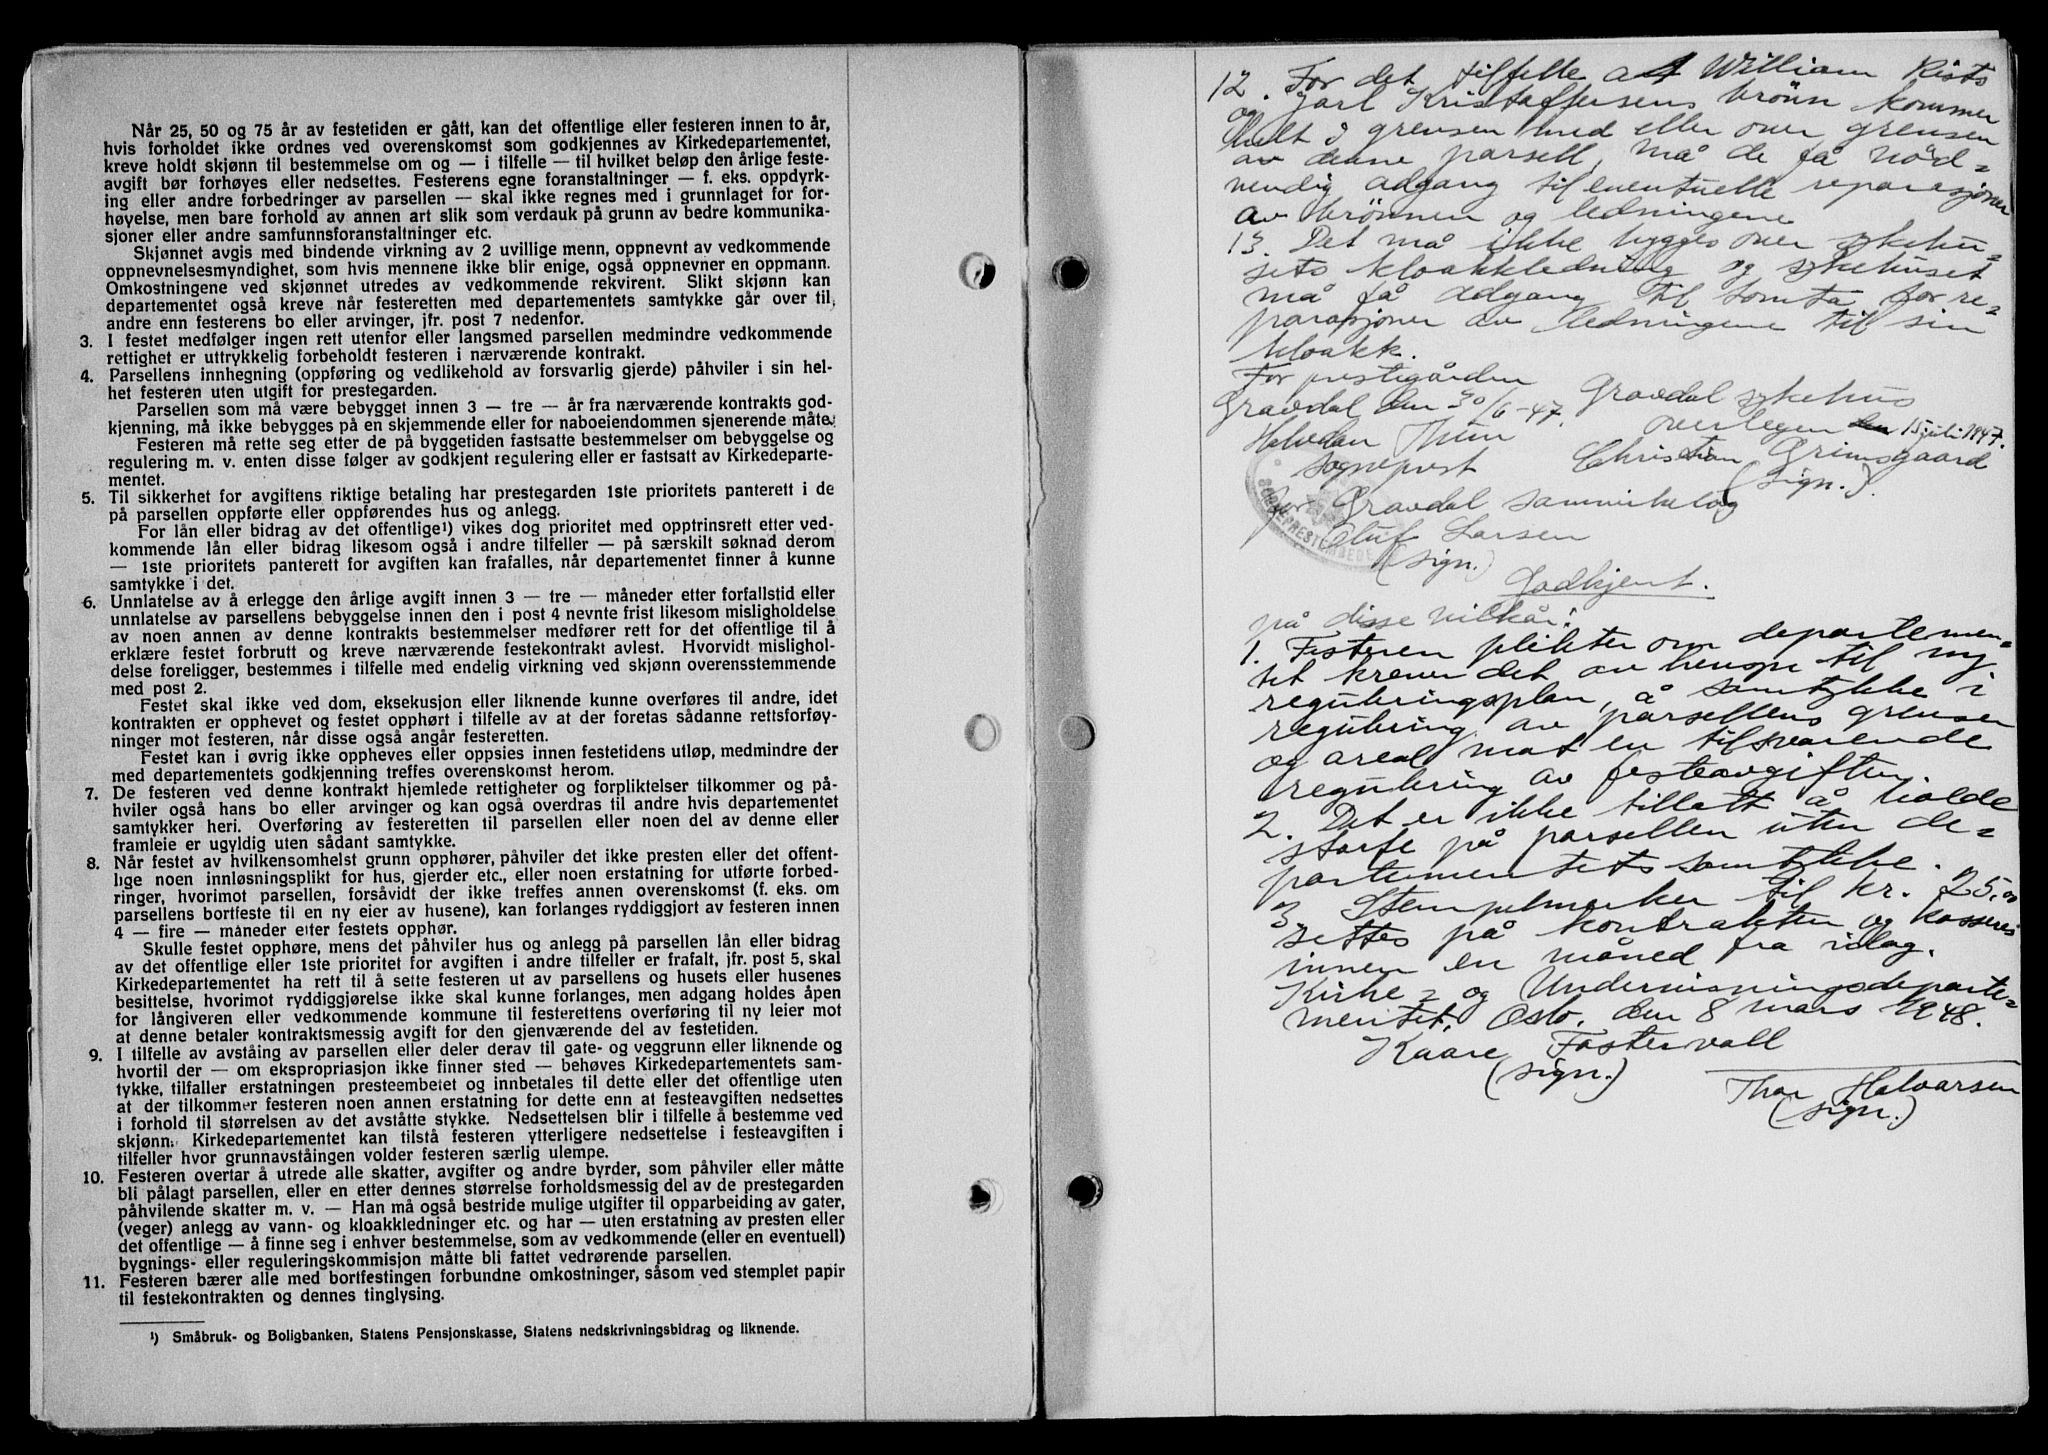 Når 25, 50 og 75 år av festetiden er gått, kan det offentlige eller festeren innen to år,
hvis forholdet ikke ordnes ved overenskomst som godkjennes av Kirkedepartementet,
kreve holdt skjønn til bestemmelse om og — i tilfelle — til hvilket beløp den årlige feste-
avgift bør forhøyes eller nedsettes. Festerens egne foranstaltninger — f. eks. oppdyrk-
ing eller andre forbedringer av parsellen — skal ikke regnes med i grunnlaget for for-
høyelse, men bare forhold av annen art slik som verdauk på grunn av bedre kommunika-
sjoner eller andre samfunnsforanstaltninger etc.
Skjønnet avgis med bindende virkning av 2 uvillige menn, oppnevnt av vedkommende
oppnevnelsesmyndighet, som hvis mennene ikke blir enige, også oppnevner en oppmann.
Omkostningene ved skjønnet utredes av vedkommende rekvirent. Slikt skjønn kan
departementet også kreve når festeretten med departementets samtykke går over til,
andre enn festerens bo eller arvinger, jfr. post 7 nedenfor.
3. I festet medfølger ingen rett utenfor eller langsmed parsellen medmindre vedkommende
rettighet er uttrykkelig forbeholdt festeren i nærværende kontrakt.
4. Parsellens innhegning (oppføring og vedlikehold av forsvarlig gjerde) påhviler i sin hel-
het festeren uten utgift for prestegarden.
Parsellen som må være bebygget innen 3 — tre — år fra nærværende kontrakts god-
kjenning, må ikke bebygges på en skjemmende eller for naboeiendommen sjenerende måte.
Festeren må rette seg etter de på byggetiden fastsatte bestemmelser om bebyggelse og
regulering m. v. enten disse følger av godkjent regulering eller er fastsatt av Kirkedeparte-
mentet.
5. Til sikkerhet for avgiftens riktige betaling har prestegarden 1ste prioritets panterett i de
på parsellen oppførte eller oppførendes hus og anlegg.
For lån eller bidrag av det offentlige¹) vikes dog prioritet med opptrinsrett etter ved-
kommende lån eller bidrag likesom også i andre tilfeller — på særskilt søknad derom
— 1ste prioritets panterett for avgiften kan frafalles, når departementet finner å kunne
samtykke i det.
6. Unnlatelse av å erlegge den årlige avgift innen 3 — tre — måneder etter forfallstid eller
unnlatelse av parsellens bebyggelse innen den i post 4 nevnte frist likesom misligholdelse
av noen annen av denne kontrakts bestemmelser medfører rett for det offentlige til å
erklære festet forbrutt og kreve nærværende festekontrakt avlest. Hvorvidt mislighol-
delse foreligger, bestemmes i tilfelle med endelig virkning ved skjønn overensstemmende
med post 2.
Festet skal ikke ved dom, eksekusjon eller liknende kunne overføres til andre, idet
kontrakten er opphevet og festet opphørt i tilfelle av at der foretas sådanne rettsforføy-
ninger mot festeren, når disse også angår festeretten.
Festet kan i øvrig ikke oppheves eller oppsies innen festetidens utløp, medmindre der
med departementets godkjenning treffes overenskomst herom.
7. De festeren ved denne kontrakt hjemlede rettigheter og forpliktelser tilkommer og på-
hviler også hans bo eller arvinger og kan også overdras til andre hvis departementet
samtykker heri. Overføring av festeretten til parsellen eller noen del av denne eller
framleie er ugyldig uten sådant samtykke.
8. Når festet av hvilkensomhelst grunn opphører, påhviler det ikke presten eller det offent-
lige noen innløsningsplikt for hus, gjerder etc., eller noen erstatning for utførte forbed-
ringer, hvorimot parsellen, forsåvidt der ikke treffes annen overenskomst (f. eks. om
parsellens bortfeste til en ny eier av husene), kan forlanges ryddiggjort av festeren innen
4 — fire — måneder etter festets opphør.
Skulle festet opphøre, mens det påhviler hus og anlegg på parsellen lån eller bidrag
av det offentlige eller 1ste prioritet for avgiften i andre tilfeller er frafalt, jfr. post 5, skal
Kirkedepartementet ha rett til å sette festeren ut av parsellens og husets eller husenes
besittelse, hvorimot ryddiggjørelse ikke skal kunne forlanges, men adgang holdes åpen
for långiveren eller vedkommende kommune til festerettens overføring til ny leier mot
at denne betaler kontraktsmessig avgift for den gjenværende del av festetiden.
9. I tilfelle av avståing av parsellen eller deler derav til gate- og veggrunn eller liknende og
hvortil der — om ekspropriasjon ikke finner sted — behøves Kirkedepartementets sam-
tykke, tilfaller erstatningen presteembetet og innbetales til dette eller det offentlige uten
at der tilkommer festeren noen annen erstatning for dette enn at festeavgiften nedsettes
i forhold til størrelsen av det avståtte stykke. Nedsettelsen blir i tilfelle å bestemme ved
skjønn. Kirkedepartementet kan tilstå festeren ytterligere nedsettelse i festeavgiften i
tilfeller hvor grunnavståingen volder festeren særlig ulempe.
10. Festeren overtar å utrede alle skatter, avgifter og andre byrder, som påhviler eller måtte
bli pålagt parsellen, eller en etter dennes størrelse forholdsmessig del av de prestegarden
påhvilende skatter m. v. — Han må også bestride mulige utgifter til opparbeiding av gater,
(veger) anlegg av vann- og kloakkledninger etc. og har — uten erstatning av presten eller
det offentlige — å finne seg i enhver bestemmelse, som av vedkommende (eller en eventuell)
bygnings- eller reguleringskommisjon måtte bli fattet vedrørende parsellen.
11. Festeren bærer alle med bortfestingen forbundne omkostninger, såsom ved stemplet papir
til festekontrakten og dennes tinglysing.
¹) Småbruk- og Boligbanken, Statens Pensjonskasse, Statens nedskrivningsbidrag og liknende.
12. For det tilfelle at William Rists
og Jarl Kristoffersens brönn kommer
helt i grensen med eller over grensen
av denne parsell, må de få nöd=
vendig adgang til eventuelle reparasjoner
av brönnen og ledningene
13. Det må ikke bygges over sykehu-
sets kloakkledning og sykehuset
må få adgang til tomta for re=
parasjoner av ledningene til sin
kloakk.
For prestegården
Gravdal den 30/6-47. Gravdal sykehus
Halvdan Thun overlegen 15 juli 1947.
sogneprest Christian Grimsgaard
(sign.).
for Gravdal samvirkelag
Oluf Larsen
(sign.)
Godkjent.
på disse vilkår:
1. Festeren plikter om departemen=
tet krever det av hensyn til ny
reguleringsplan, å samtykke i
regulering av parsellens grenser
og areal mot en tilsvarende
regulering av festeavgiften.
2. Det er ikke tillatt å holde
storfe på parsellen uten de=
partementets samtykke.
3 Stempelmerker til kr. 25,00
settes på kontrakten og kasseres
innen en måned fra idag.
Kirke= og Undervisningsdeparte=
mentet, Oslo, den 8 mars 1948.
Kaare Fostervoll
(sign.)
Thor Halvorsen
(sign.)